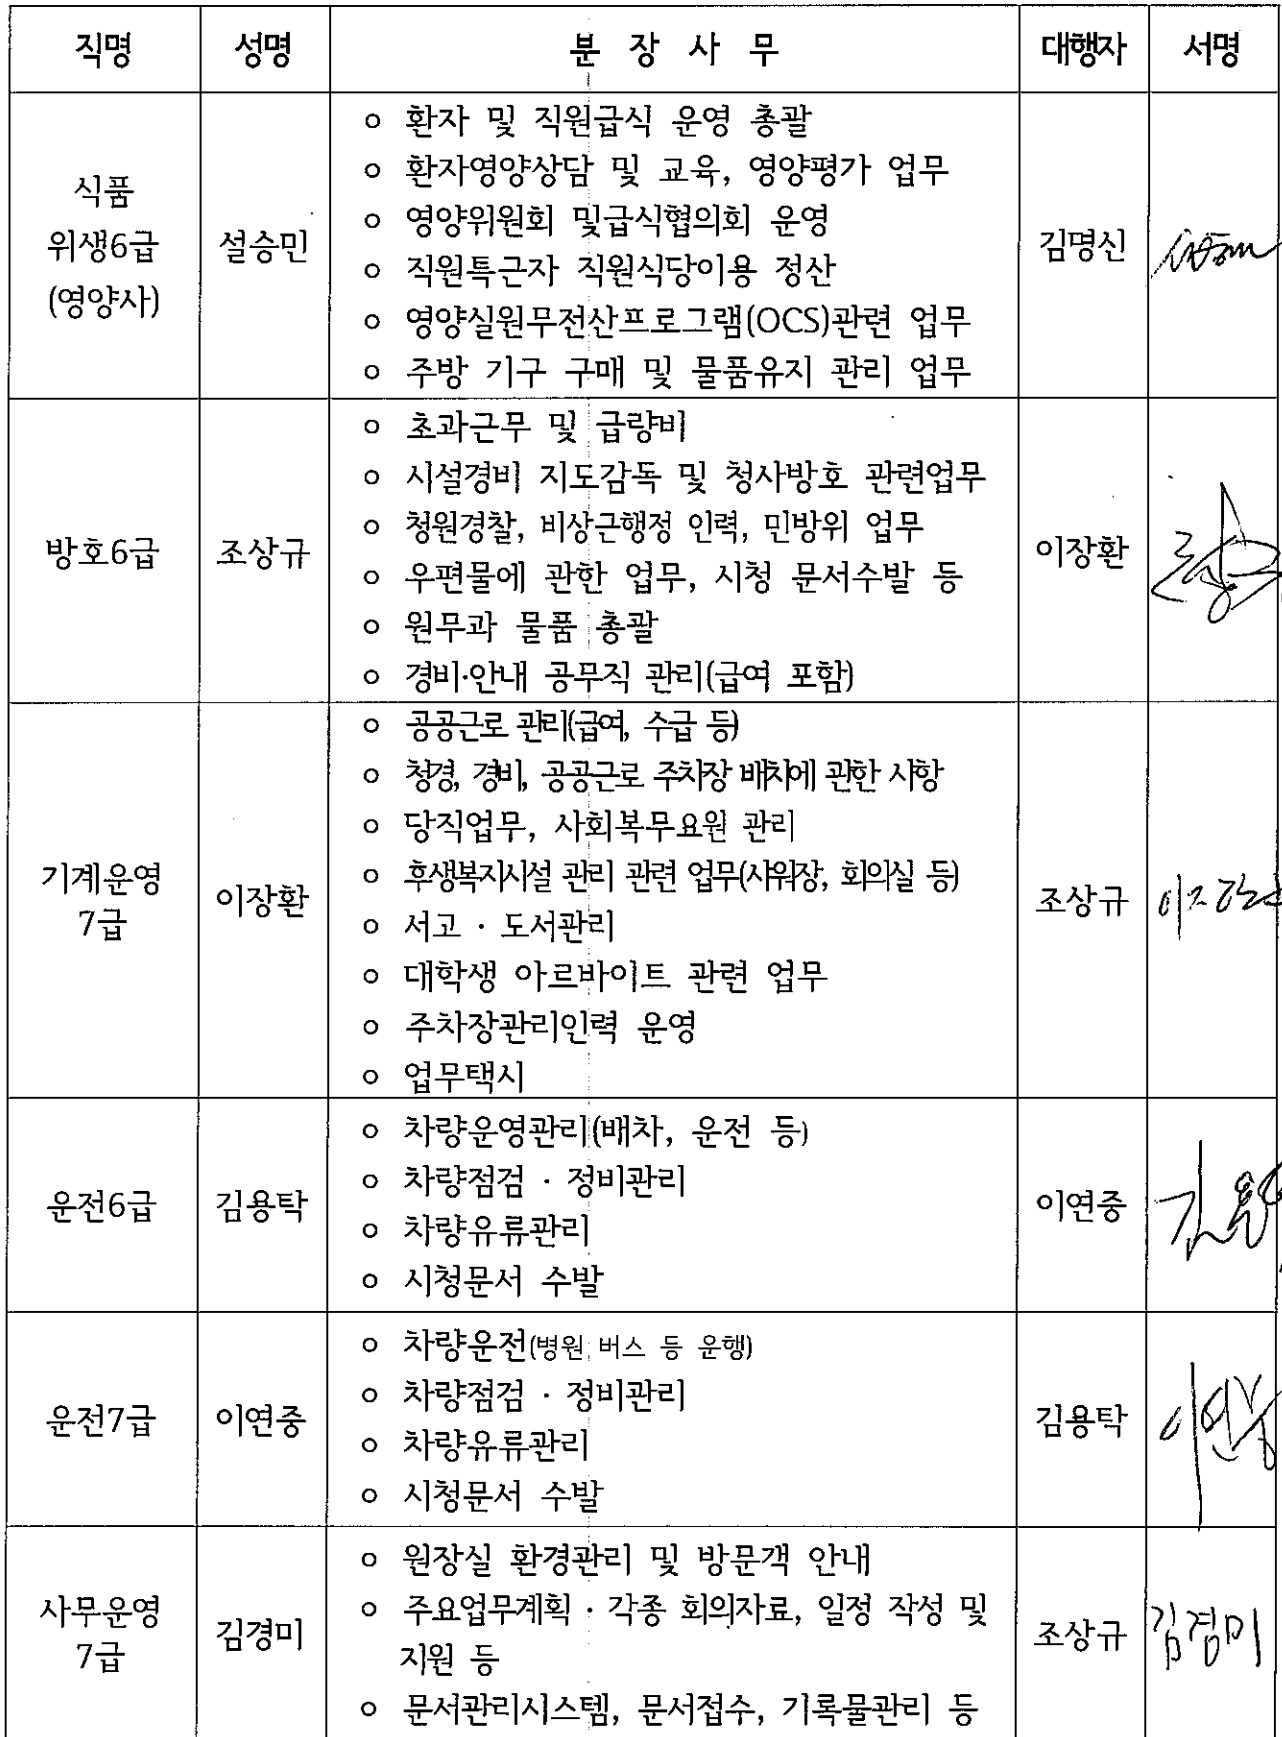 직명 성명 분 장 사 무 대행자 서명
식품
위생6급
(영양사)
설승민
ㅇ 환자 및 직원급식 운영 총괄
ㅇ 환자영양상담 및 교육, 영양평가 업무
ㅇ 영양위원회 및급식협의회 운영
ㅇ 직원특근자 직원식당이용 정산
ㅇ 영양실원무전산프로그램(OCS)관련 업무
ㅇ 주방 기구 구매 및 물품유지 관리 업무
김명신
방호6급
조상규
ㅇ 초과근무 및 급량비
ㅇ 시설경비 지도감독 및 청사방호 관련업무
ㅇ 청원경찰, 비상근행정 인력, 민방위 업무
ㅇ 우편물에 관한 업무, 시청 문서수발 등
ㅇ 원무과 물품 총괄
ㅇ 경비·안내 공무직 관리(급여 포함)
이장환
기계운영
7급
이장환
ㅇ 공공근로 관리(급여, 수급 등)
ㅇ 청경, 경비, 공공근로 주차장 배치에 관한 사항
ㅇ 당직업무, 사회복무요원 관리
ㅇ 후생복지시설 관리 관련 업무(샤워장, 회의실 등)
ㅇ 서고 · 도서관리
ㅇ 대학생 아르바이트 관련 업무
ㅇ 주차장관리인력 운영
ㅇ 업무택시
조상규
운전6급
김용탁
ㅇ 차량운영관리(배차, 운전 등)
ㅇ 차량점검 · 정비관리
ㅇ 차량유류관리
ㅇ 시청문서 수발
이연중
운전7급
이연중
ㅇ 차량운전(병원 버스 등 운행)
ㅇ 차량점검 · 정비관리
ㅇ 차량유류관리
ㅇ 시청문서 수발
김용탁
이연중
사무운영
7급
김경미
ㅇ 원장실 환경관리 및 방문객 안내
ㅇ 주요업무계획 · 각종 회의자료, 일정 작성 및
지원 등
ㅇ 문서관리시스템, 문서접수, 기록물관리 등
조상규
김경미